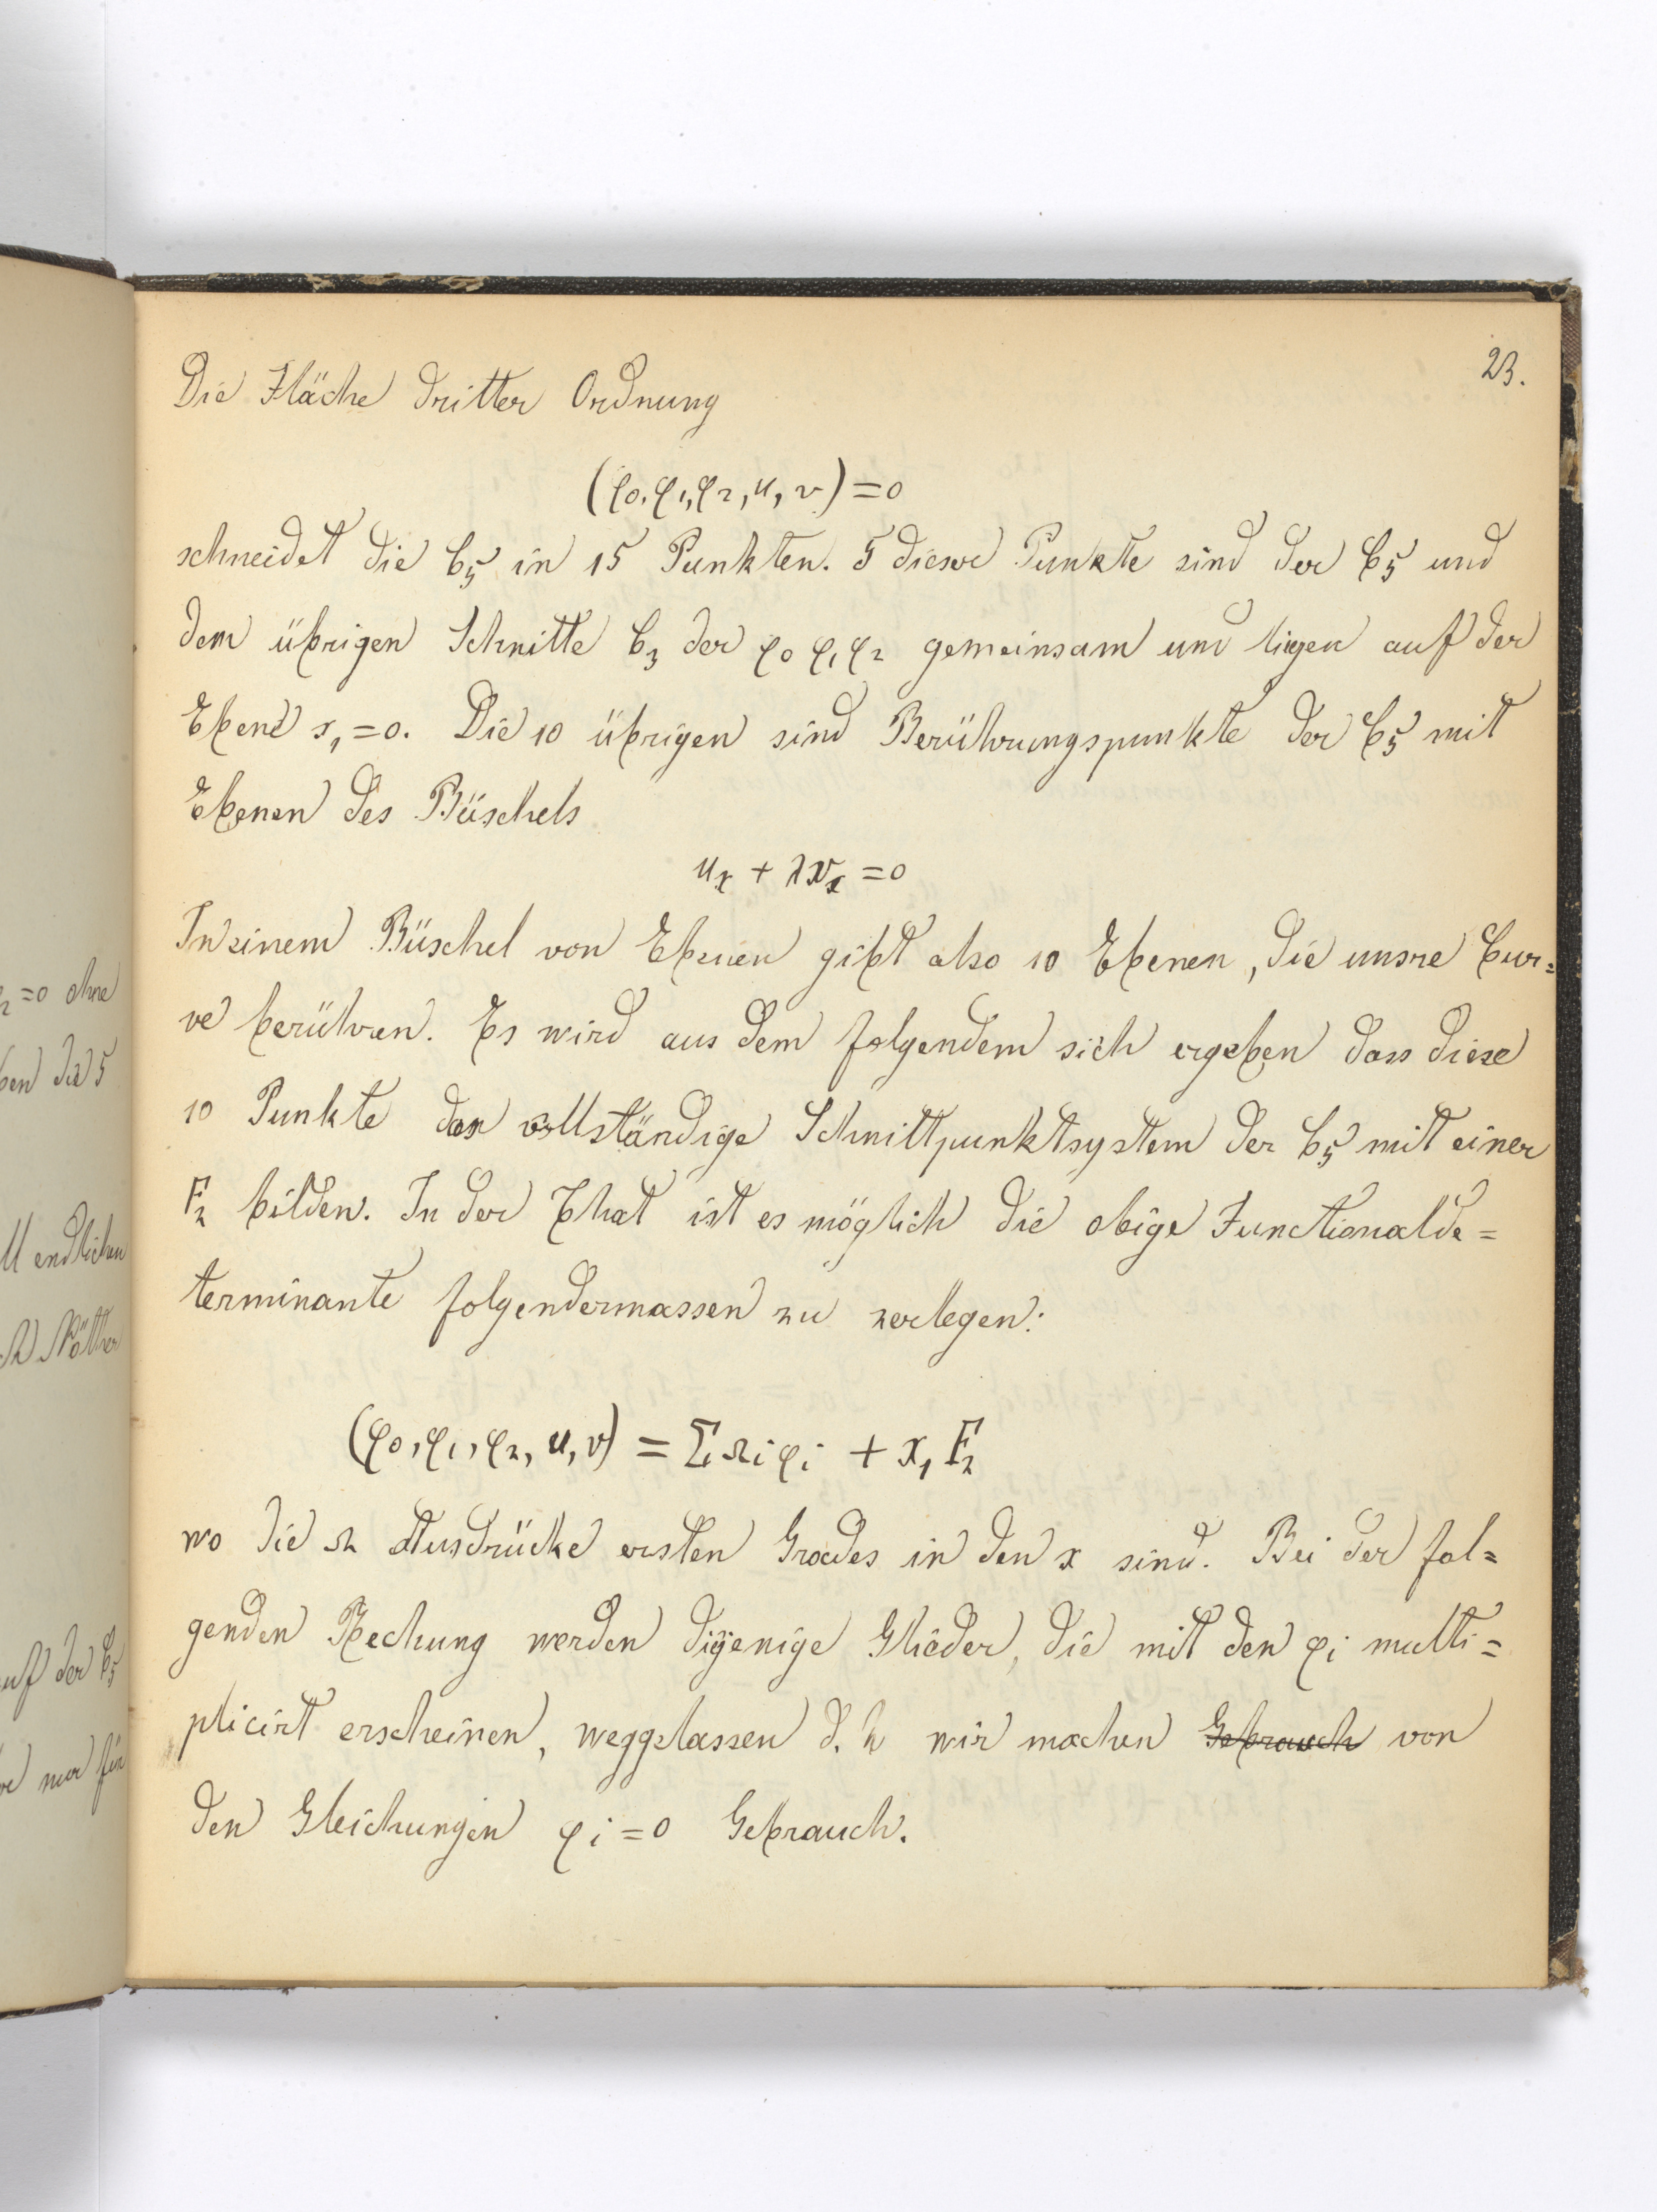 23.
Die Fläche dritter Ordnung
(φ0, φ1, φ2, u, v) = 0
schneidet die C5 in 15 Punkten. 5 dieser Punkte sind der C5 und
dem übrigen Schnitte C3 der φ0 φ1 φ2 gemeinsam und liegen auf der
Ebene x1 = 0. Die 10 übrigen sind Berührungspunkte der C5 mit
Ebenen des Büschels
ux + λvx = 0
In einem Büschel von Ebenen gibt also 10 Ebenen, die unsre Cur=
ve berühren. Es wird aus dem folgendem sich ergeben dass diese
10 Punkte das vollständige Schnittpunktsystem der C5 mit einer
F2 bilden. In der That ist es möglich die obige Functionalde=
terminante folgendermassen zu zerlegen:
(φ0, φ1, φ2, u, v) = Σ Ωi φi + x1 F2
wo die Ω Ausdrücke ersten Grades in den x sind. Bei der fol=
genden Rechung werden dijenige Glieder, die mit den φi multi=
plicirt erscheinen, weggelassen d. h wir machen Gebrauch von
den Gleichungen φi = 0 Gebrauch.
2 = 0 ohne
ben die 5
ll endlichen
ch Nöther
auf der C5
ve nur für